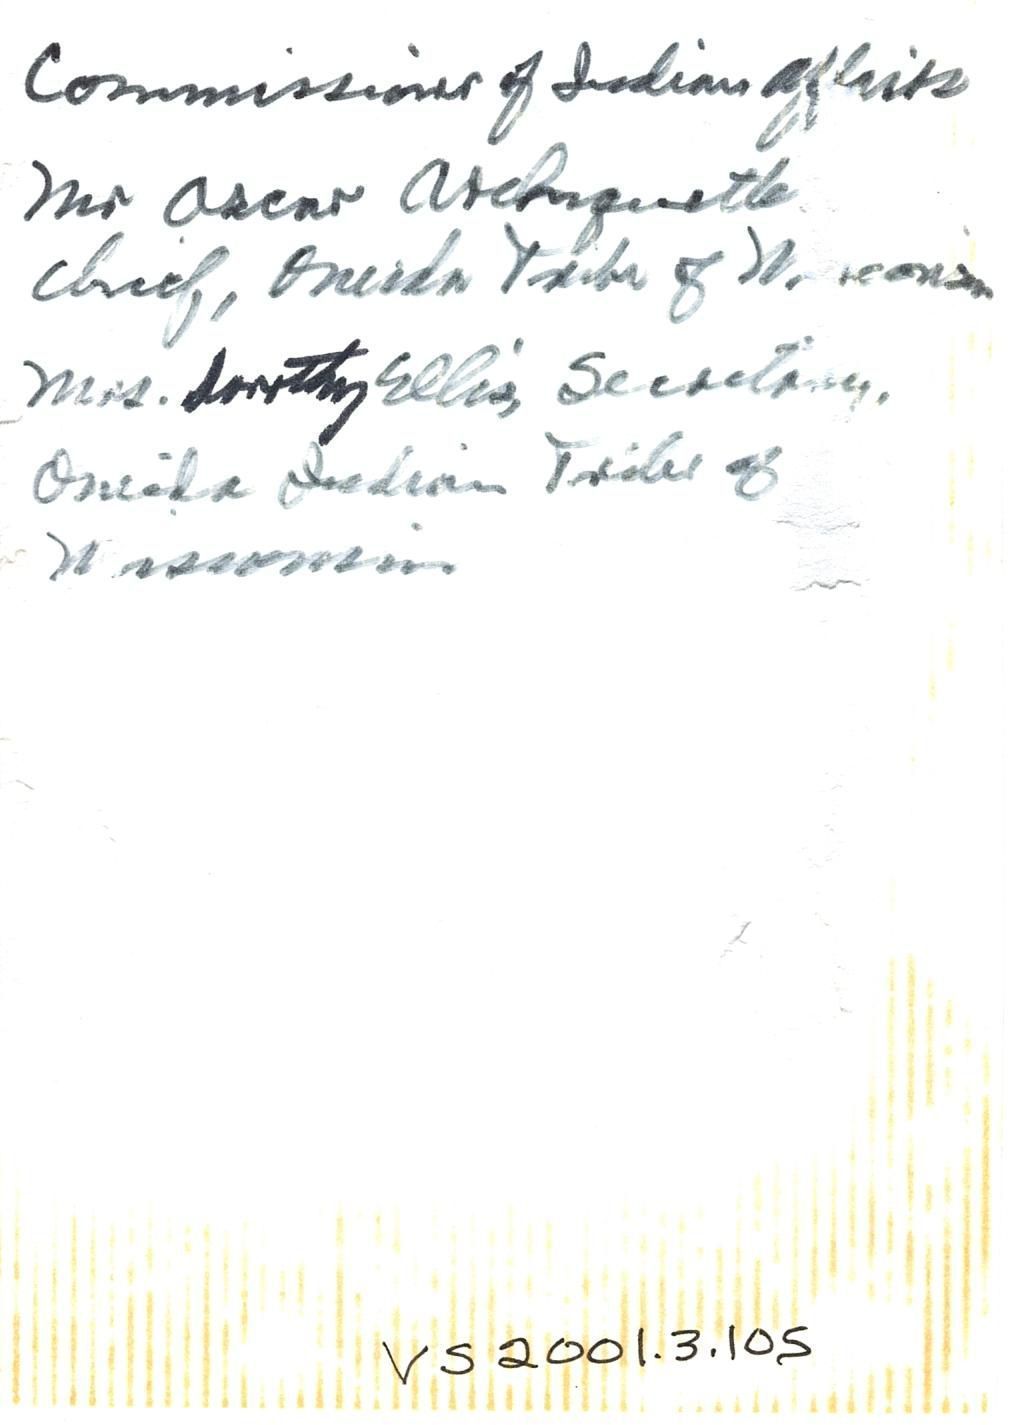 Commissioner of Indian Affairs
Mr Oscar Archiquette
Chief, Oneida Tribe of Wisconsin
Mrs. Dorothy Ellis, Secretary,
Oneida Indian Tribe of
Wisconsin
VS 2001.3.105